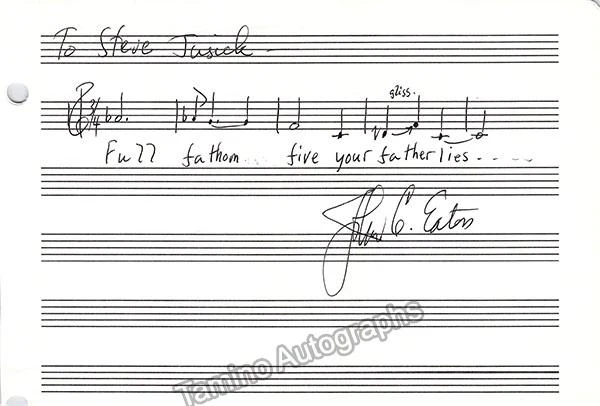 To Steve Jusick -
gliss.
3/4
Full fathom five your father lies - - - -
John C. Eaton
Tamino Autographs